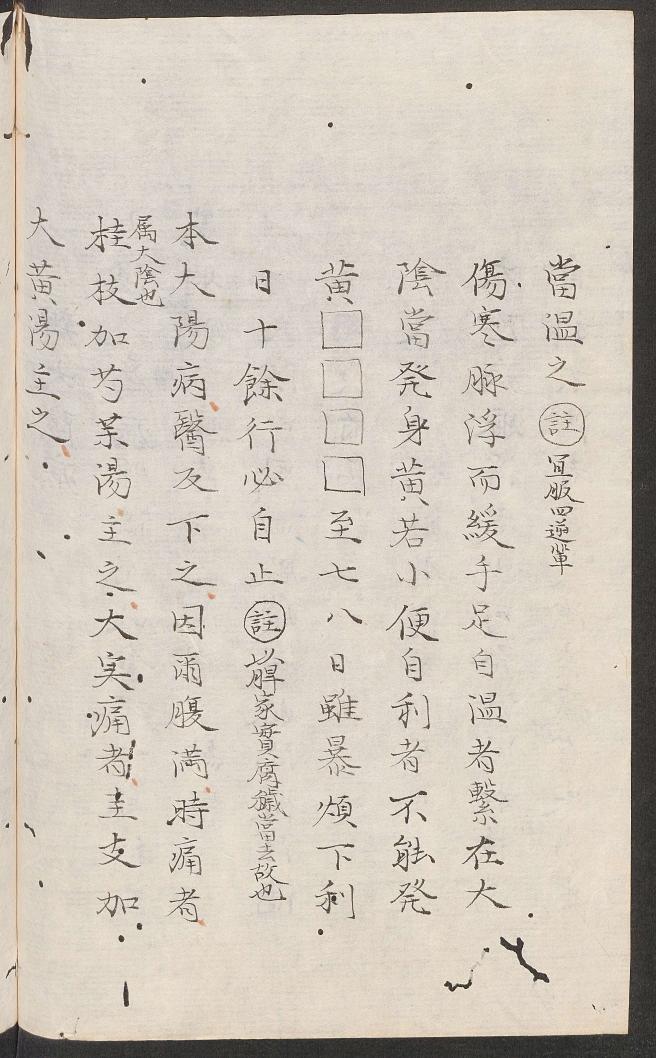 當温之 註 冝服四逆軰
傷寒脉浮而緩手足自温者繋在大
陰當発身黄若小便自利者不能発
黄□□□□至七八日雖暴煩下利
日十餘行必自止 註 以脾家實腐穢當去故也
本大陽病醫反下之因爾腹満時痛者
属大陰也
桂枝加芍薬湯主之大実痛者主支加
大黄湯主之